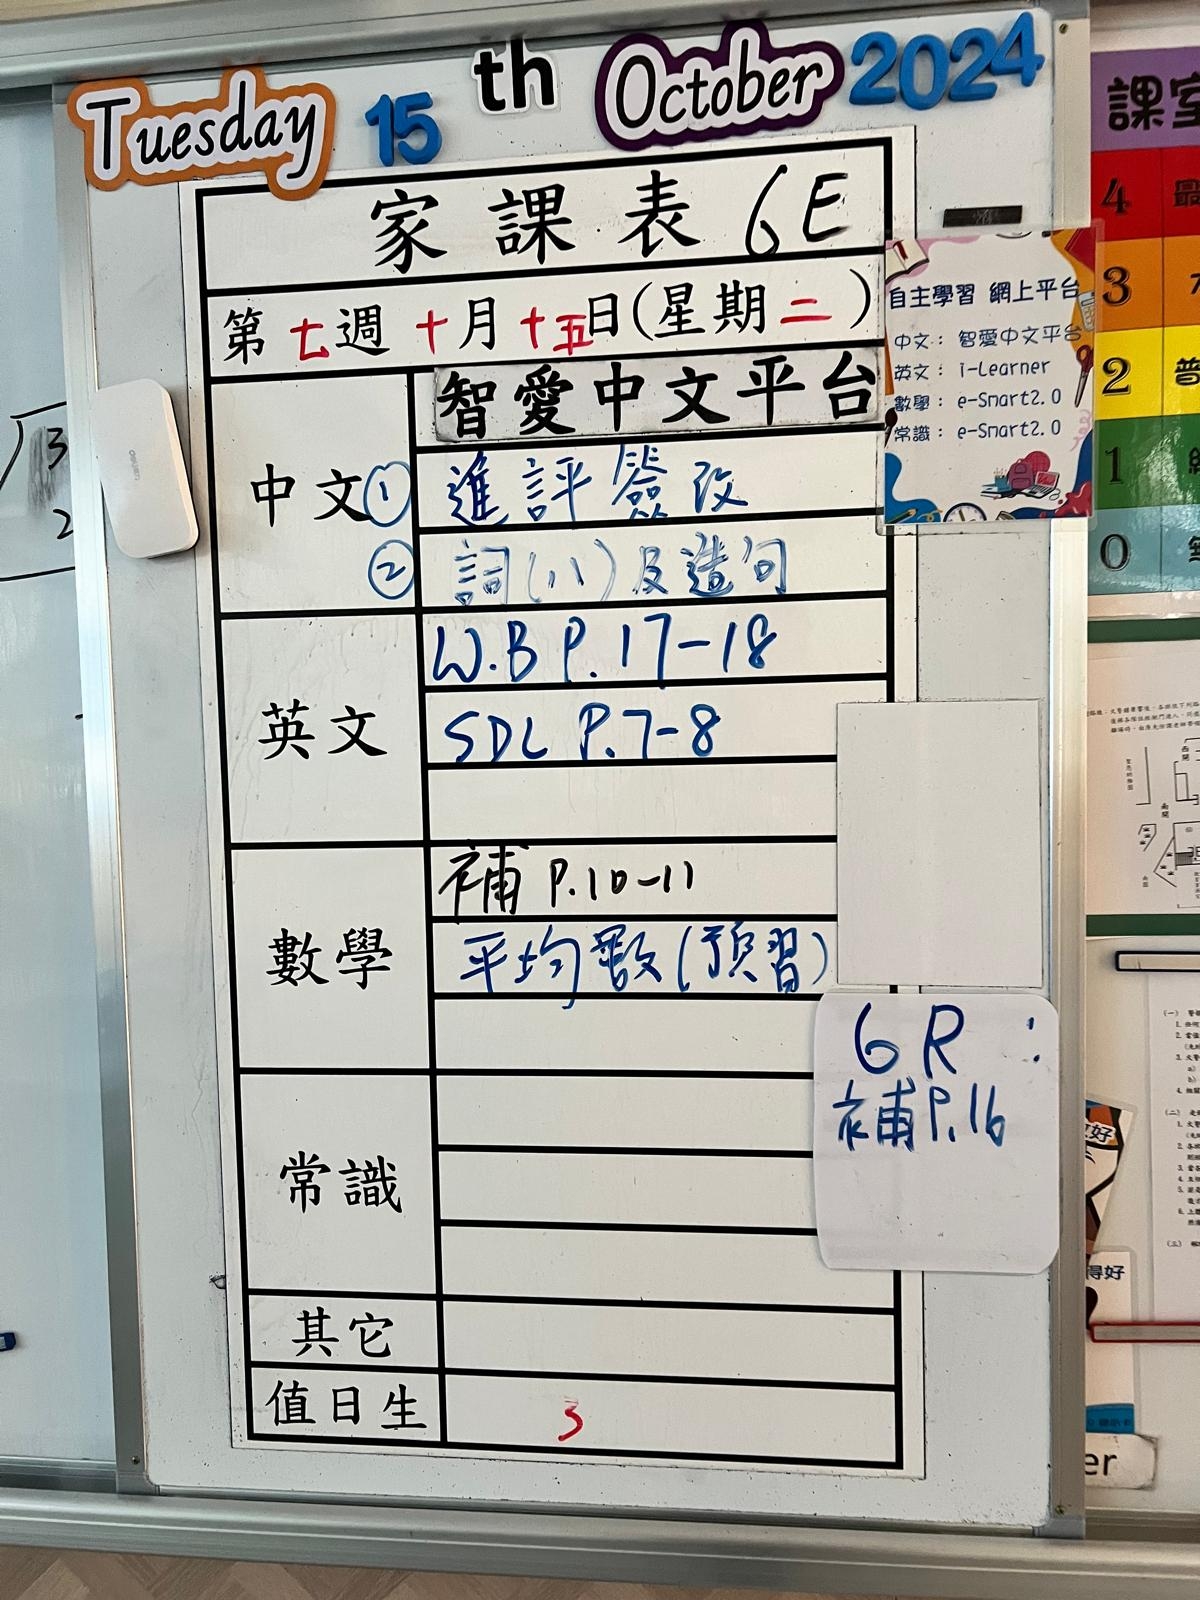 Tuesday 15th October 2024
家課表 6E
第七週十月十五日(星期二)
智愛中文平台
中文① 進評簽改
② 詞(八)及造句
英文
W.B P.17-18
SDL P.7-8
數學
補 P.10-11
平均數(預習)
6R:
補P.16
常識
其它
值日生 3
自主學習 網上平台
中文: 智愛中文平台
英文: i-Learner
數學: e-Smart2.0
常識: e-Smart2.0
課室
4 最
3
2 普
1
0
3
2
好
得好
er